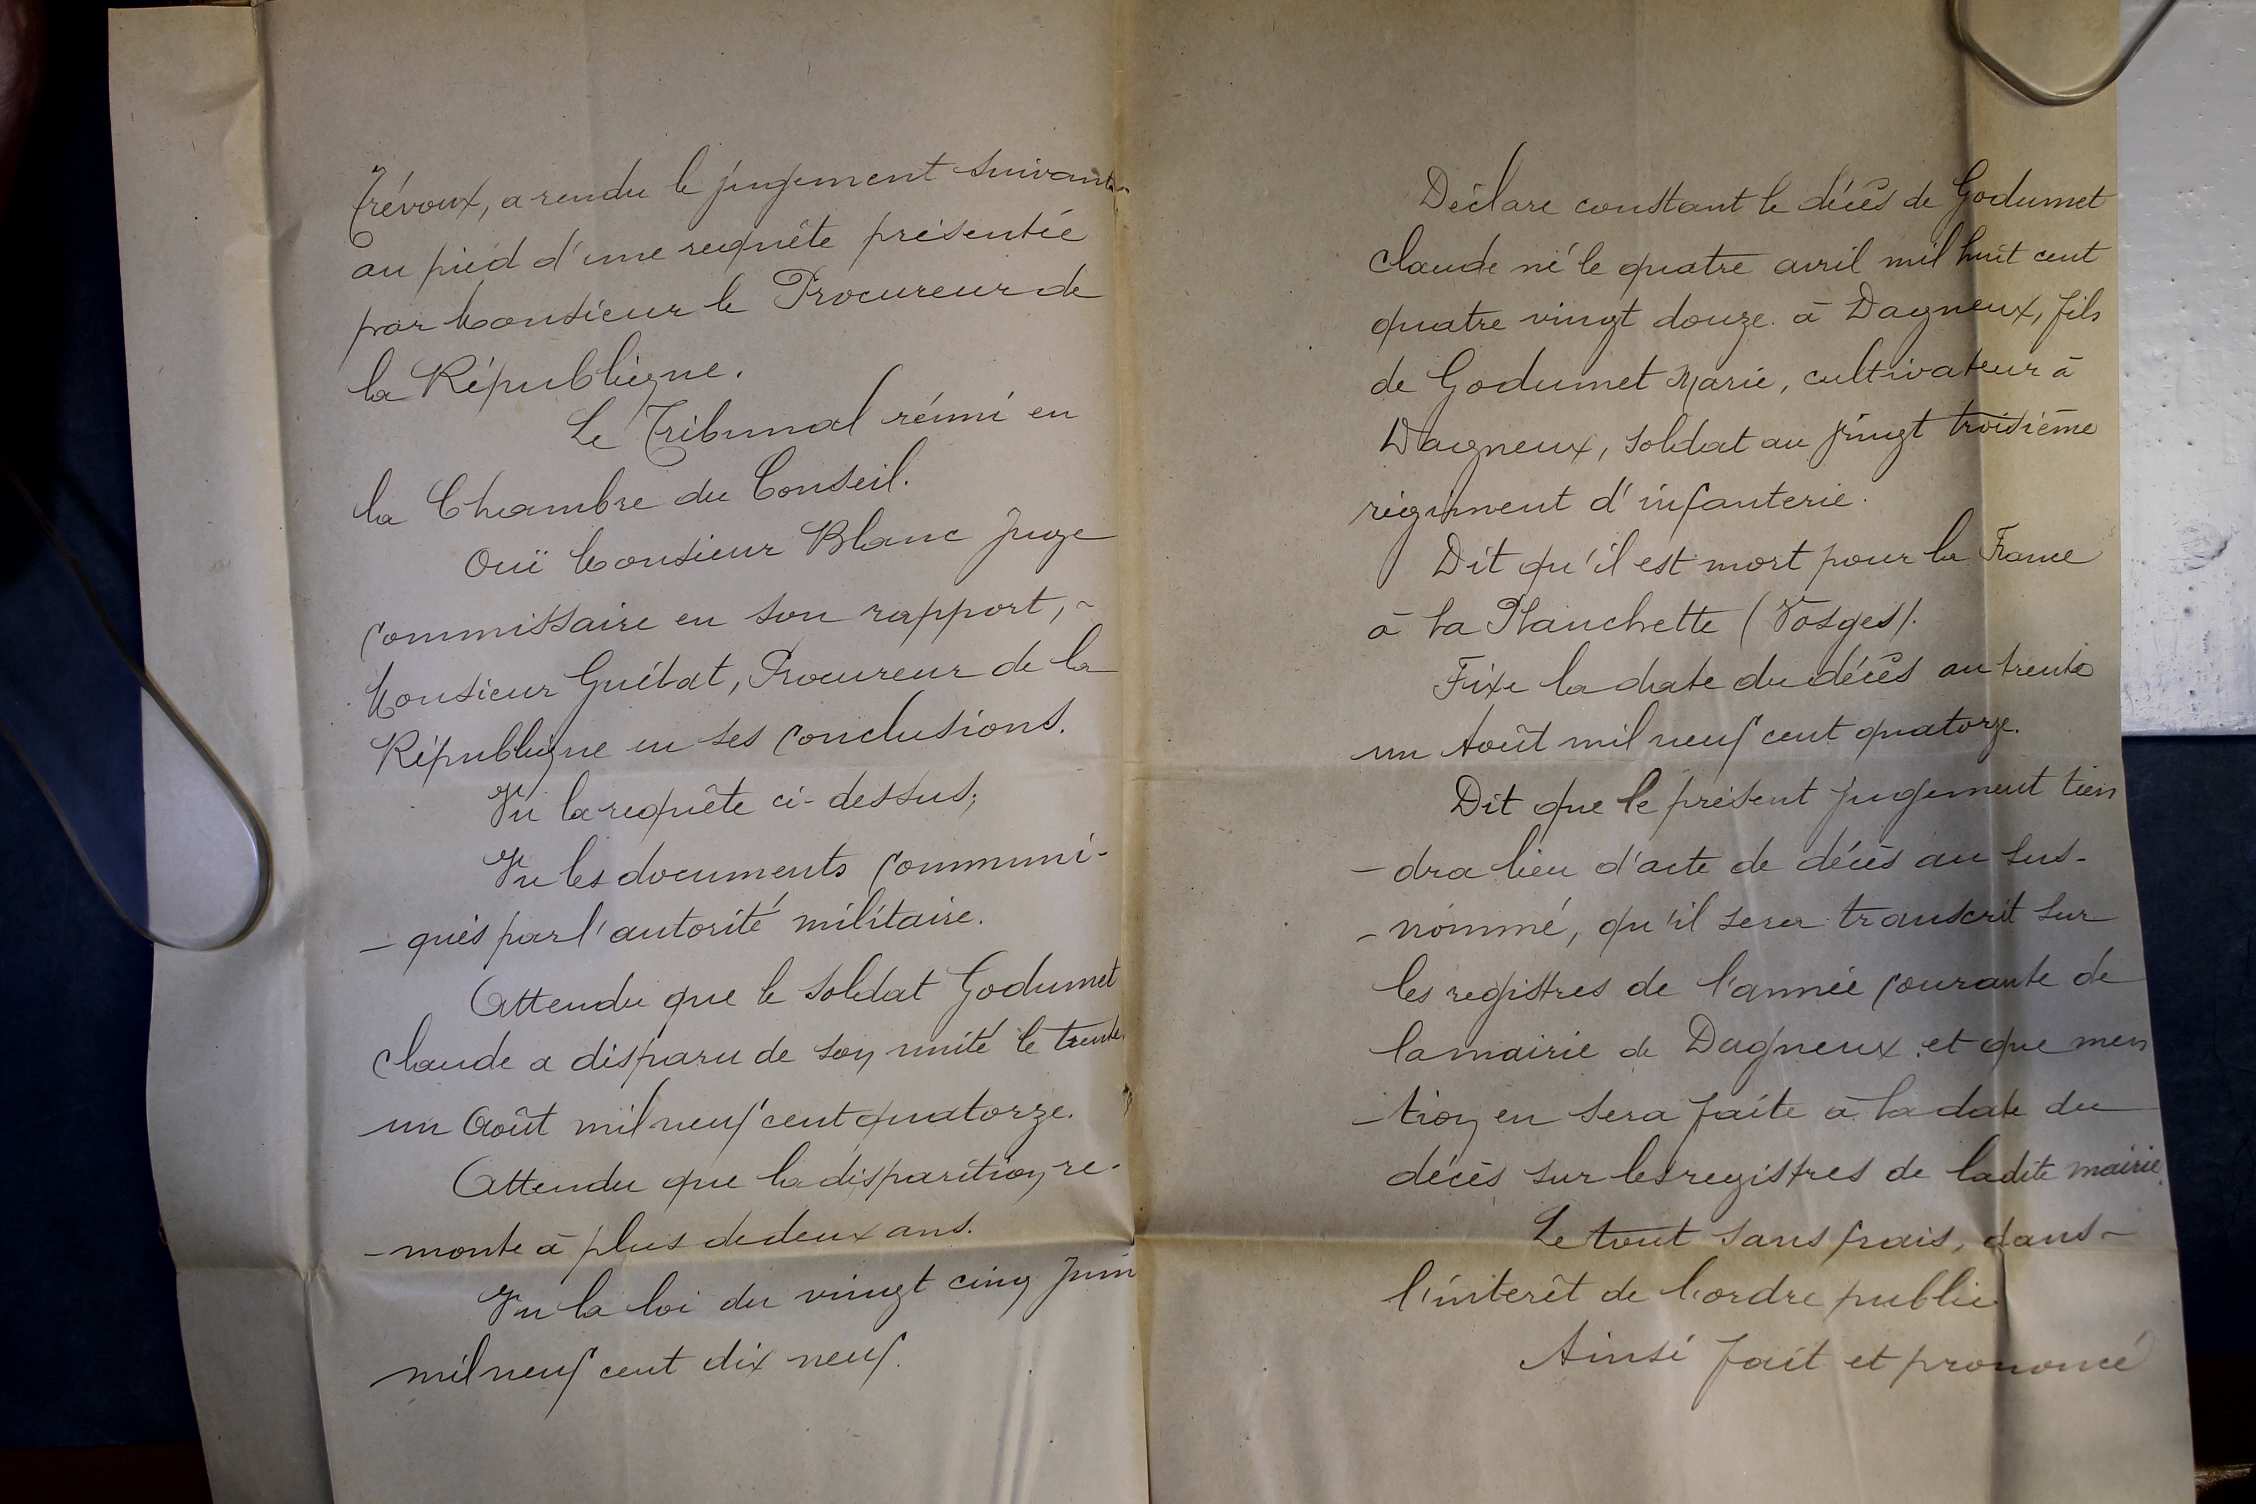 Trévoux, a rendu le jugement suivant
au pied d'une requête présentée
par Monsieur le Procureur de
la République.
Le Tribunal réuni en
la Chambre du Conseil.
Ouï Monsieur Blanc Juge
commissaire en son rapport,
Monsieur Guétat, Procureur de la
République en ses conclusions.
Vu la requête ci-dessus;
Vu les documents communi-
-qués par l'autorité militaire.
Attendu que le soldat Godumet
Claude a disparu de son unité le trente
un Août mil neuf cent quatorze.
Attendu que la disparition re-
-monte à plus de deux ans.
Vu la loi du vingt cinq Juin
mil neuf cent dix neuf.
Déclare constant le décès de Godumet
Claude né le quatre avril mil huit cent
quatre vingt douze à Dagneux, fils
de Godumet Marie, cultivateur à
Dagneux, soldat au vingt troisième
régiment d'infanterie.
Dit qu'il est mort pour la France
à la Planchette (Vosges).
Fixe la date du décès au trente
un Août mil neuf cent quatorze.
Dit que le présent jugement tien
-dra lieu d'acte de décès au sus-
-nommé, qu'il sera transcrit sur
les registres de l'année courante de
la mairie de Dagneux et que men
-tion en sera faite à la date du
décès sur les registres de ladite mairie.
Le tout sans frais, dans
l'intérêt de l'ordre public.
Ainsi fait et prononcé